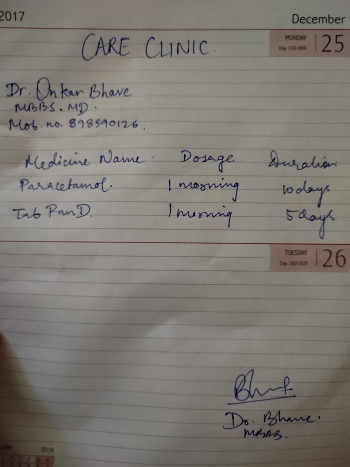 2017 December
MONDAY 25
CARE CLINIC
Dr. Onkar Bhave
MBBS. MD.
Mob. no. 898590126.
Medicine Name Dosage Duration
Paracetamol. 1 morning 10 days
Tab Pan D. 1 morning 5 days
TUESDAY 26
Dr. Bhave.
MBBS.
2018